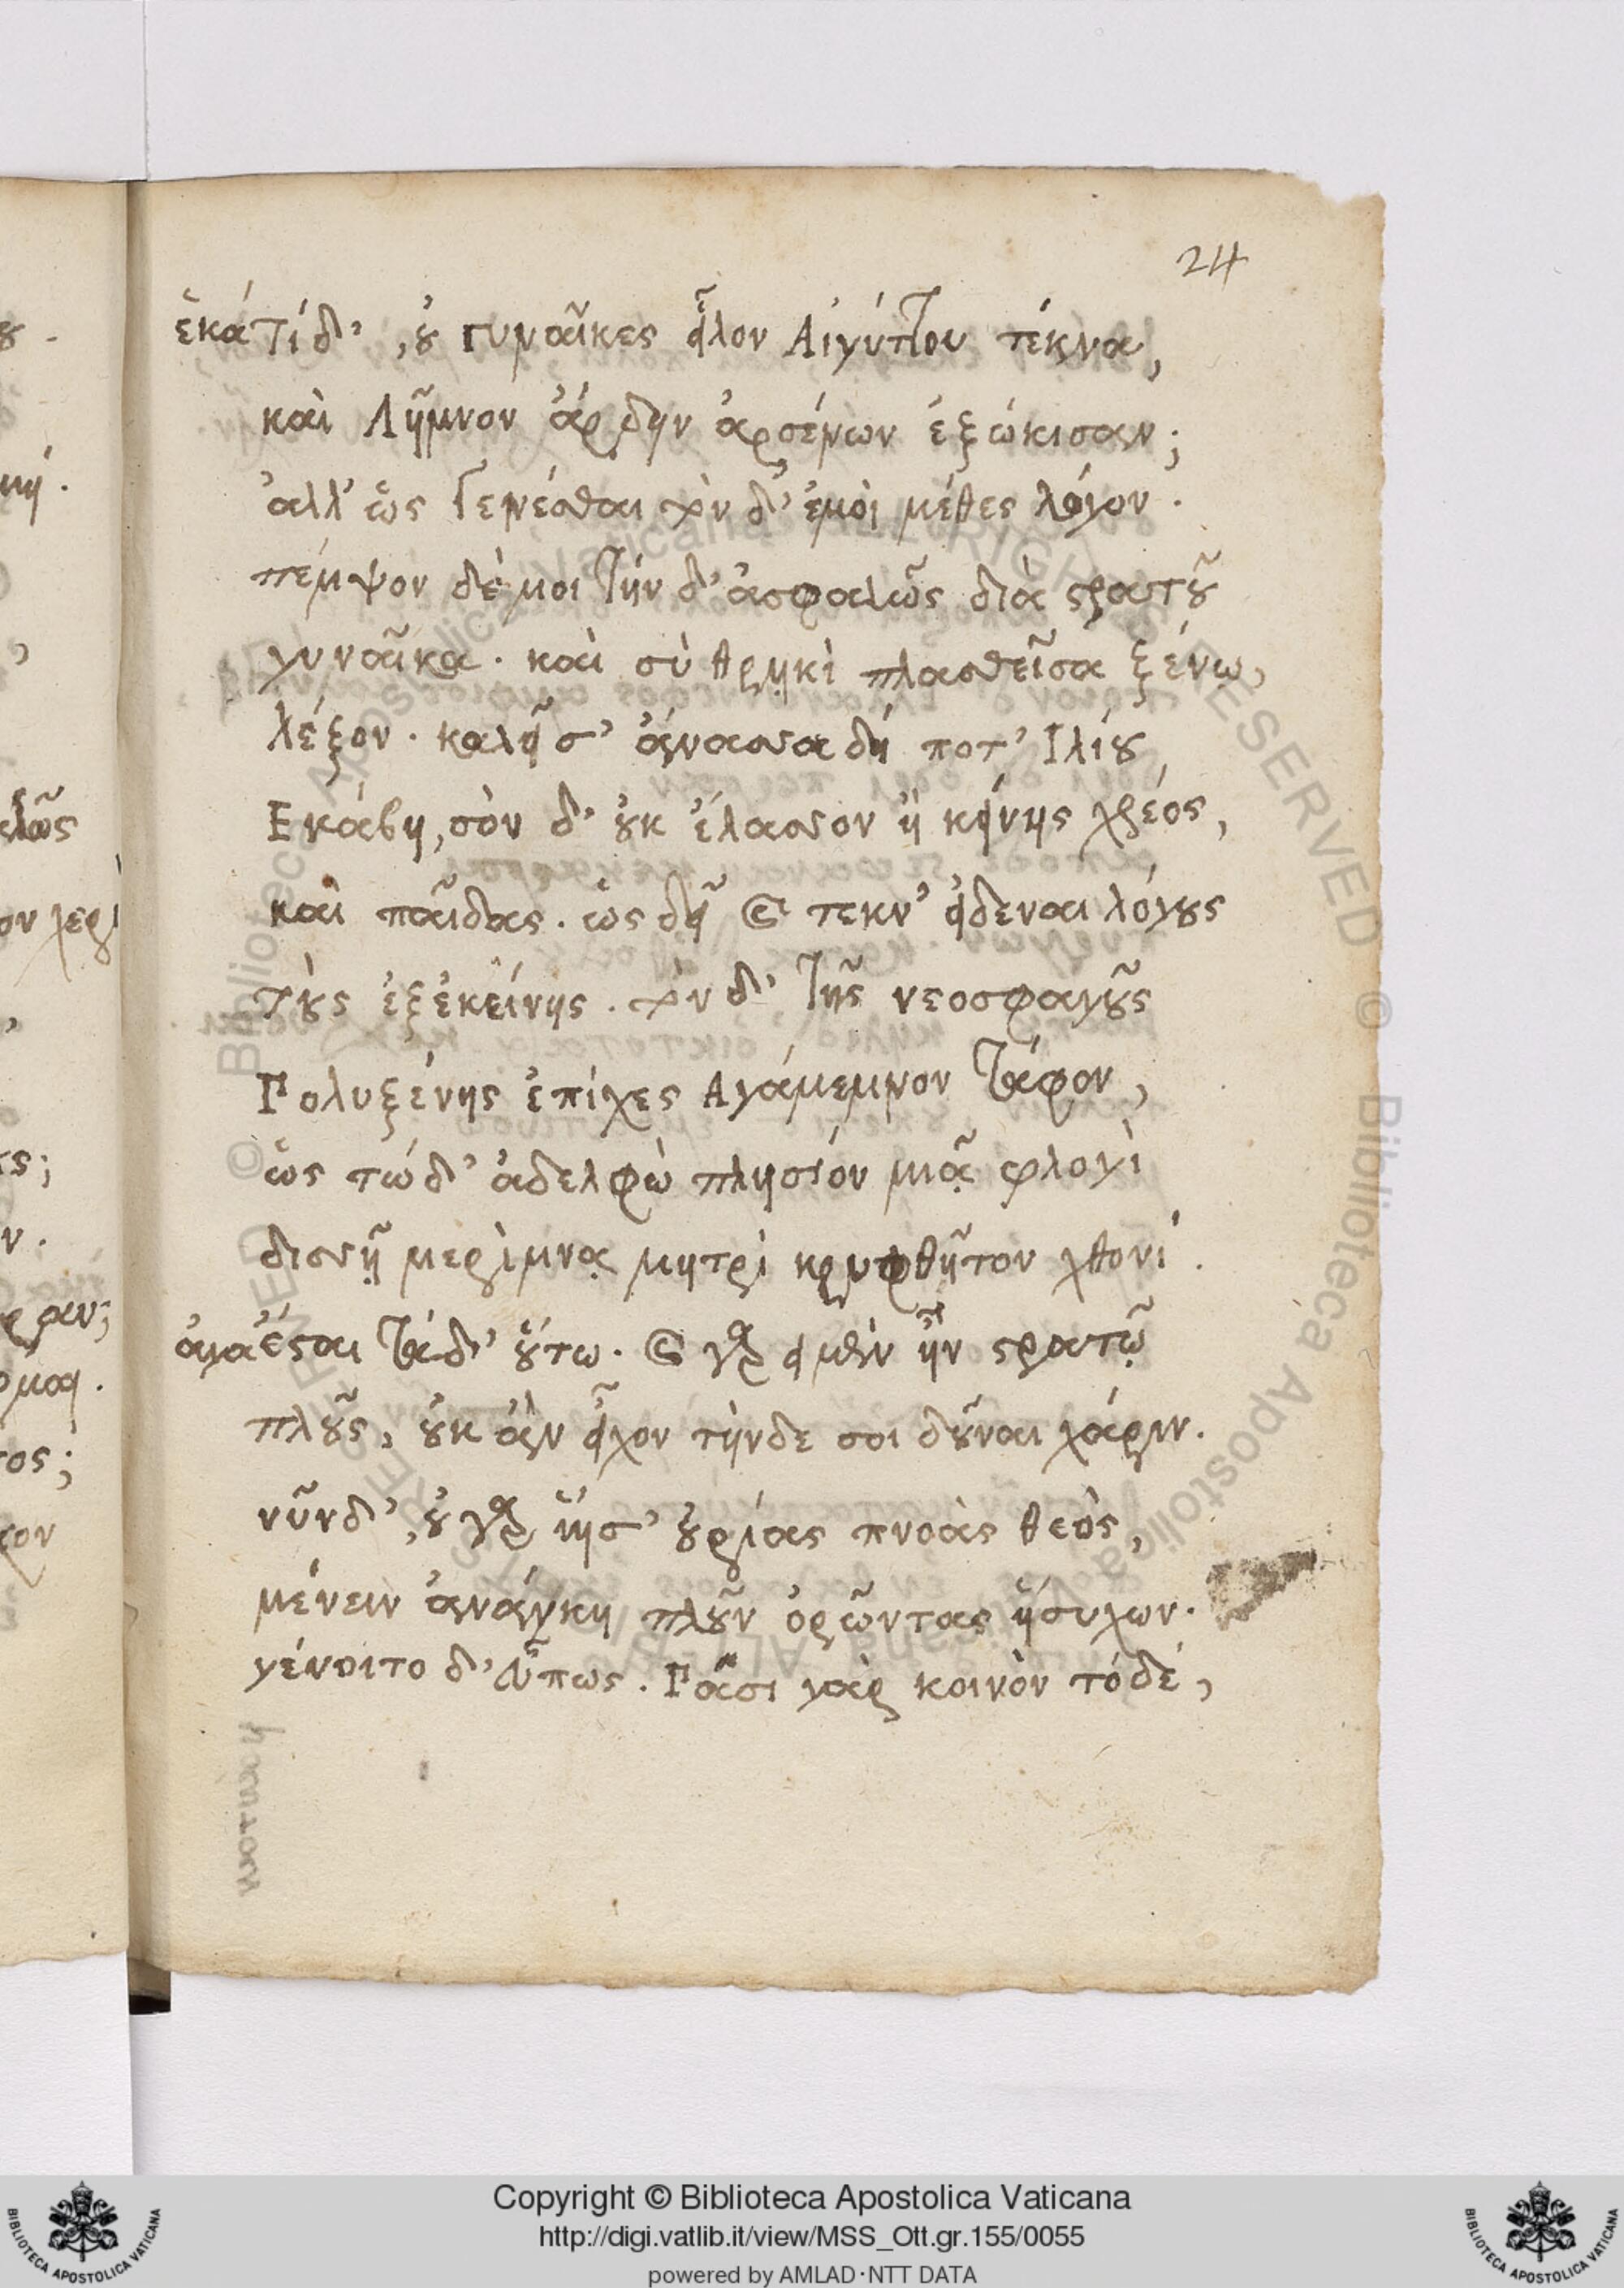 24
ἑκά τί δ', οὐ γυναῖκες εἷλον Αἰγύπτου τέκνα,
καὶ Λῆμνον ἄρδην ἀρσένων ἐξώκισαν;
ἀλλ' ὣς γενέσθαι τὸν δ' ἐμοὶ μέθες λόγον.
πέμψον δέ μοι τήν δ' ἀσφαλῶς διὰ στρατοῦ
γυναῖκα. καὶ σὺ θρηκὶ πλασθεῖσα ξένω,
λέξον. καλεῖ σ' ἄνασσα δή ποτ' Ιλίου,
Εκάβη, σὸν δ' οὐκ ἔλασσον ἢ κείνης χρέος,
καὶ παῖδας. ὡς δεῖ καὶ τεκν' εἰδεναι λόγους
τοὺς ἐξεκείνης. τὸν δ' τῆς νεοσφαγοῦς
Πολυξένης ἐπίχες Αγάμεμνον τάφον,
ὡς τώ δ' ἀδελφὼ πλησίον μιᾷ φλογὶ
δισσῇ μερίμνᾳ μητρὶ κρυφθῆτον χθονί.
ἀγα ἔσται τάδ' οὕτω. καὶ γὰρ εἰ μὲν ἦν στρατῷ
πλοῦς, οὐκ ἂν εἶχον τήνδε σοι δοῦναι χάριν.
νῦν δ', οὐ γὰρ ἵησ' οὐρίας πνοὰς θεὸς,
μένειν ἀνάγκη πλοῦν ὁρῶντας ἥσυχων.
γένοιτο δ' εὖ πως. Πᾶσι γὰρ κοινὸν τόδε,
Copyright © Biblioteca Apostolica Vaticana
http://digi.vatlib.it/view/MSS_Ott.gr.155/0055
powered by AMLAD·NTT DATA